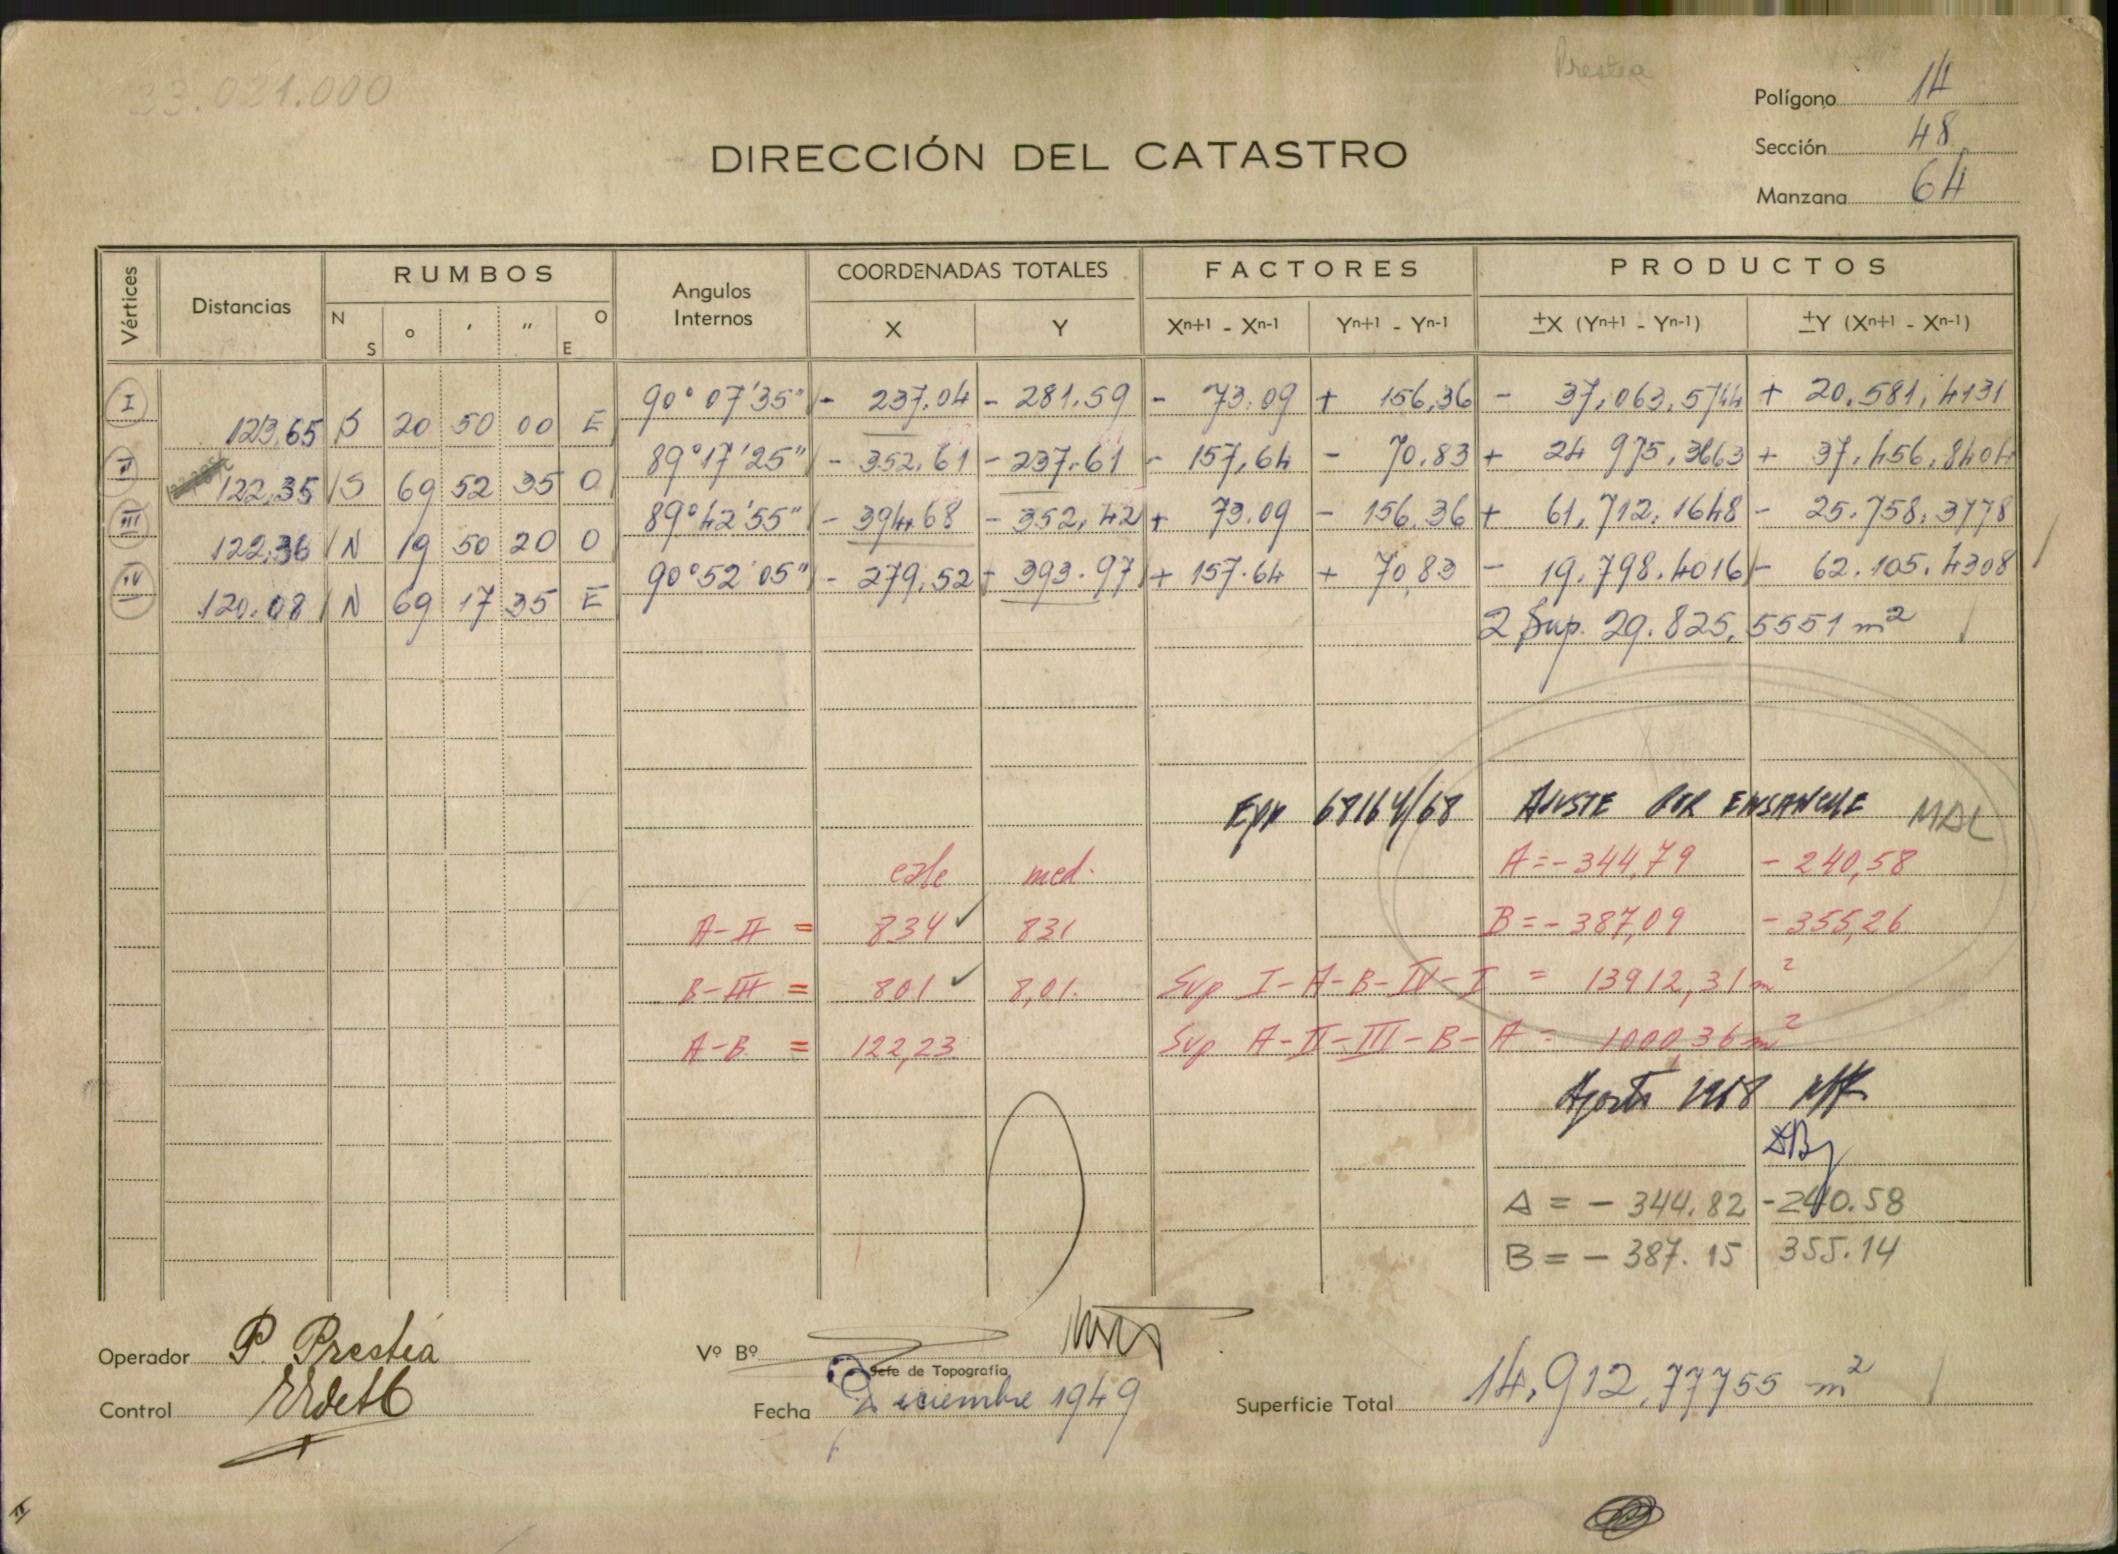 33.021.000
Prestia
Polígono 14
Sección 48
Manzana 64
DIRECCIÓN DEL CATASTRO
Vértices Distancias RUMBOS Angulos Internos COORDENADAS TOTALES FACTORES PRODUCTOS
N S ° ' " O E X Y Xn+1 - Xn-1 Yn+1 - Yn-1 ±X (Yn+1 - Yn-1) ±Y (Xn+1 - Xn-1)
I 90° 07' 35" - 237.04 - 281.59 - 73.09 + 156,36 - 37,063,5744 + 20.581,4131
123,65 S 20 50 00 E
II 89° 17' 25" - 352,61 - 237.61 - 157,64 - 70.83 + 24 975,3663 + 37,456,8404
122,35 S 69 52 35 O
III 89° 42' 55" - 394.68 - 352,42 + 73.09 - 156.36 + 61,712,1648 - 25.758,3778
122,36 N 19 50 20 O
IV 90° 52' 05" - 279,52 - 393.97 + 157.64 + 70,83 - 19.798.4016 - 62.105.4308
120.08 N 69 17 35 E
2 Sup. 29.825,5551 m²
Exp 68164/68 AJUSTE POR ENSANCHE MAL
calc med. A = - 344,79 - 240,58
A-II = 834 831 B = - 387,09 - 355,26
B-III = 801 8,01 Sup I-A-B-IV-I = 13912,31 m²
A-B = 122,23 Sup A-II-III-B-A = 1000,36 m²
Agosto 1968
A = - 344.82 - 240.58
B = - 387.15 355.14
Operador P. Prestia
Vº Bº
Jefe de Topografía
Control
Fecha Diciembre 1949
Superficie Total 14,912,77755 m²